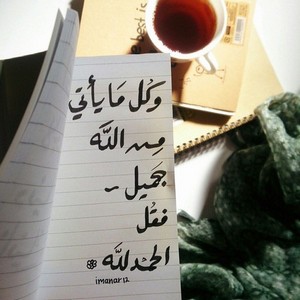 وَكُل مَا يأتي
مِن اللَّه
جَميل ~
فقُل
الحَمْدللَّه
imanar12